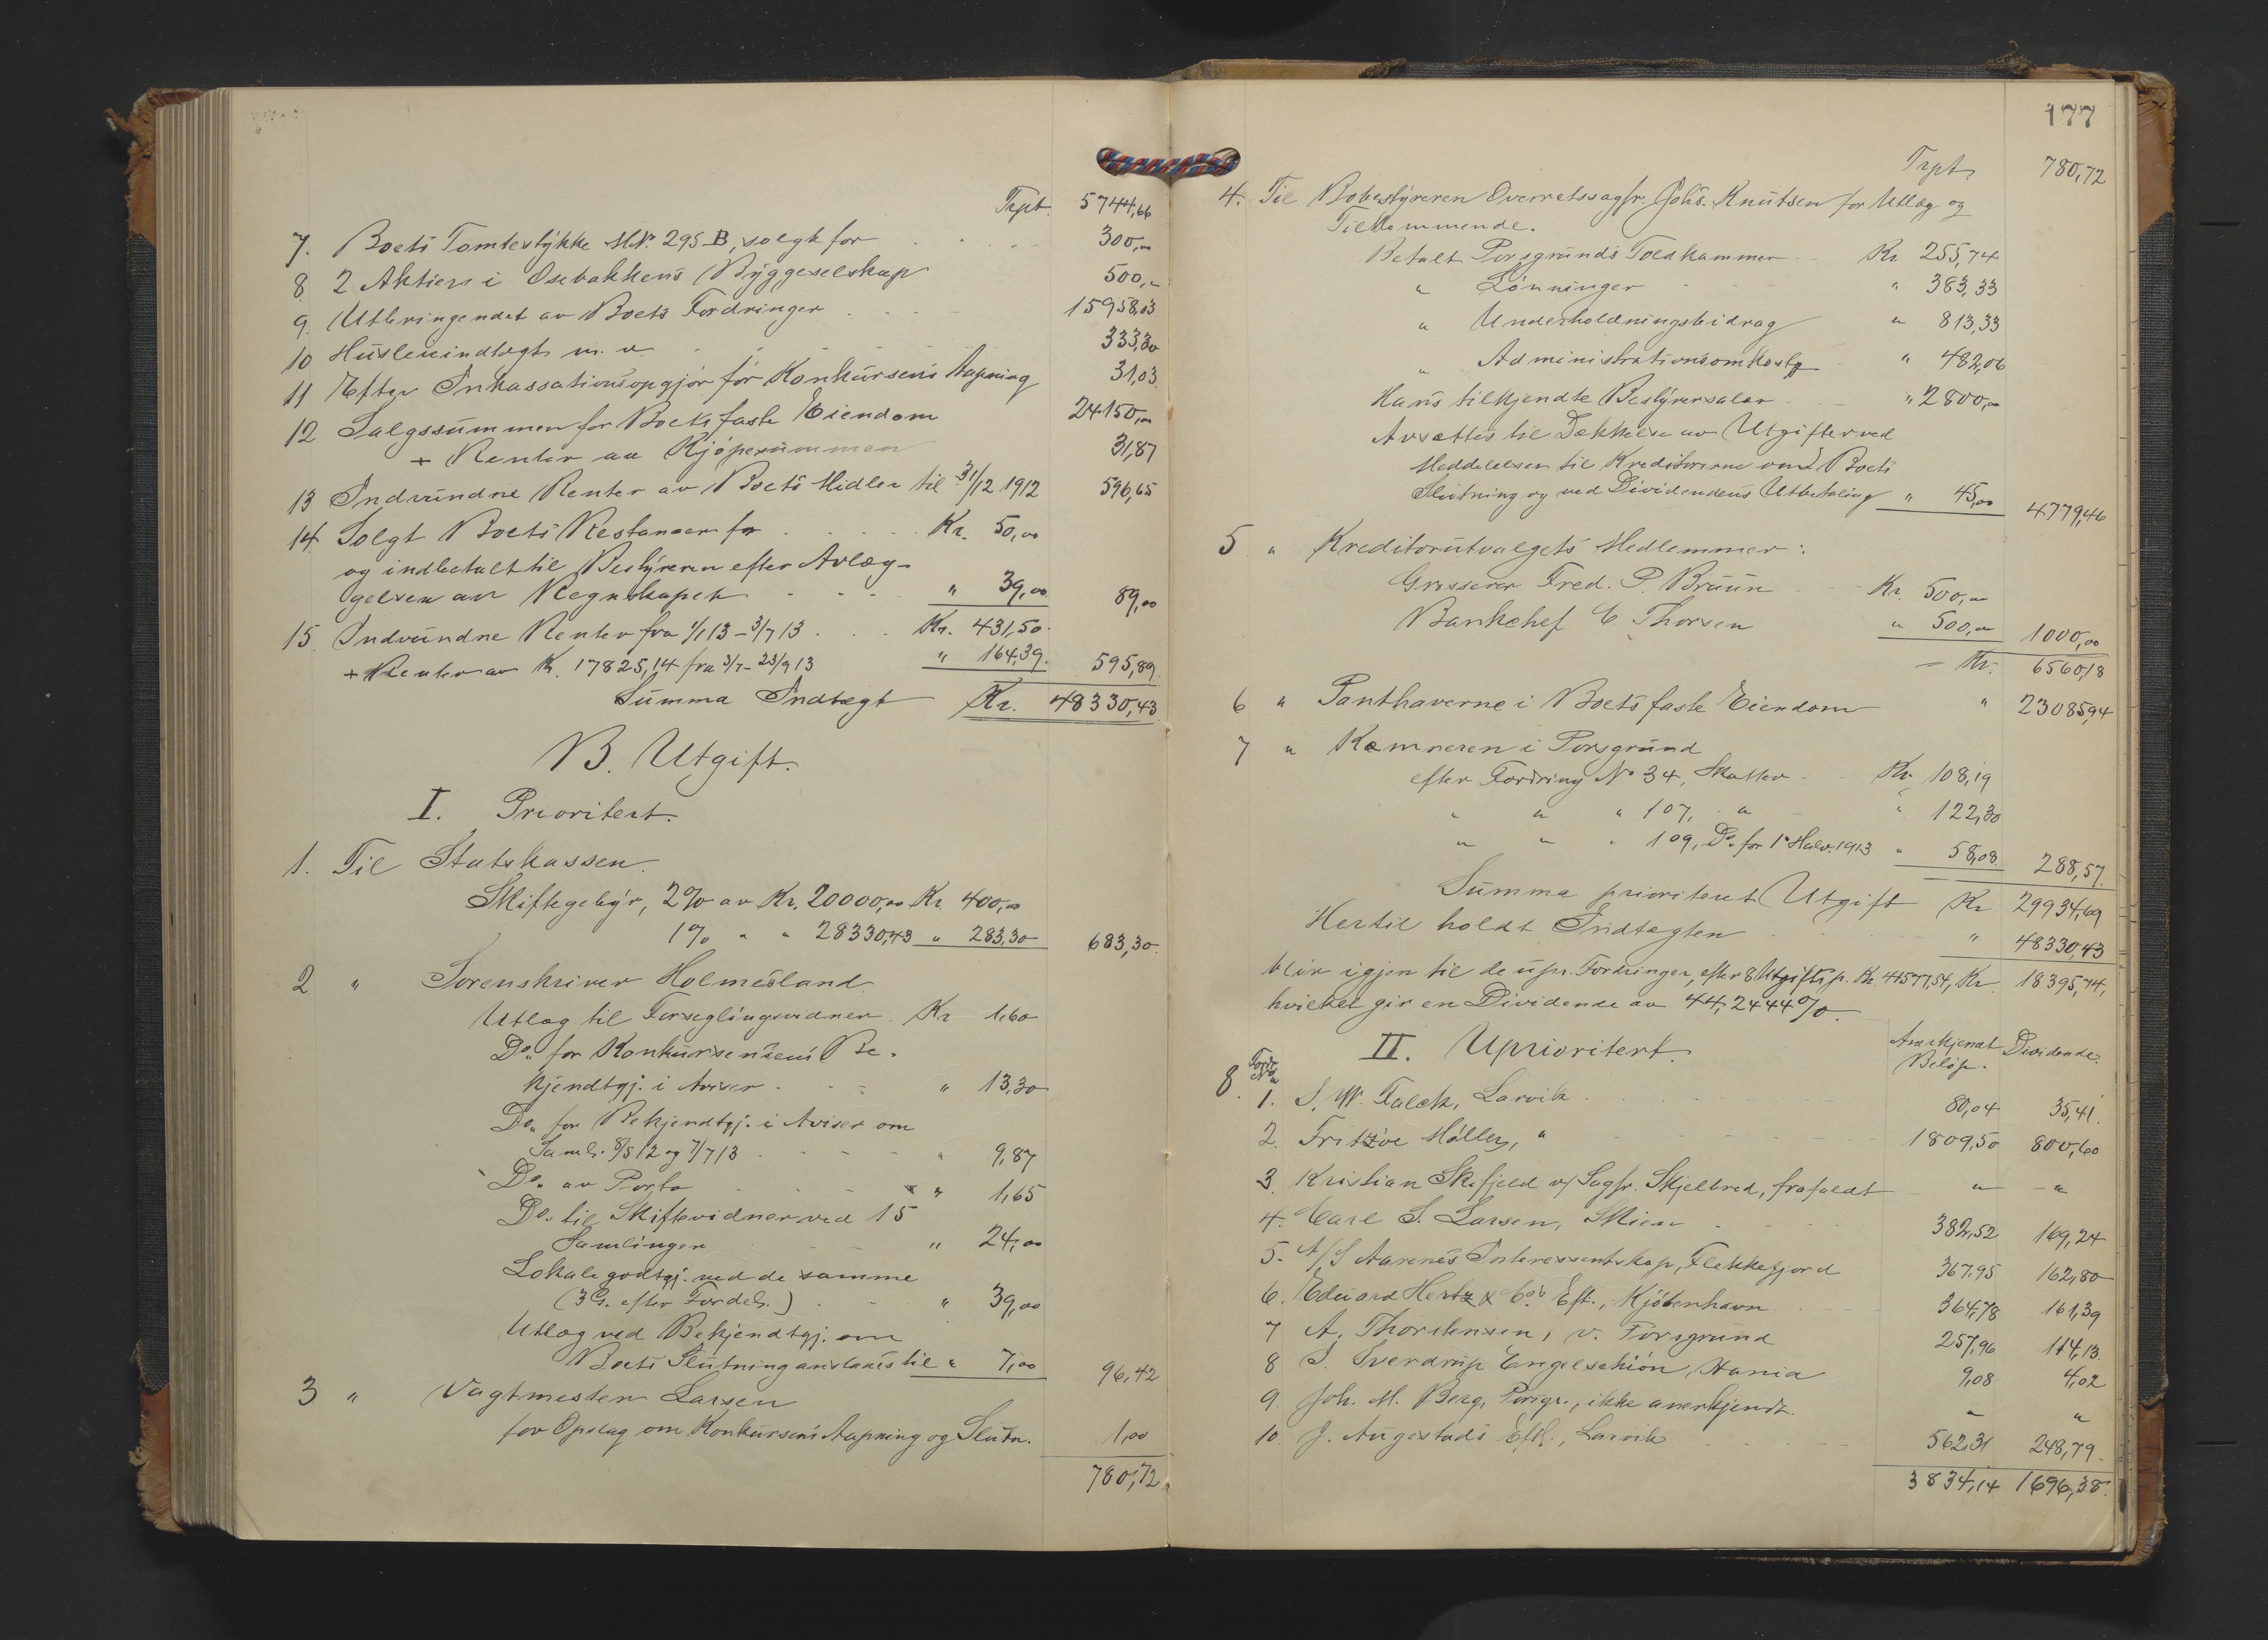 Trpt. 5744,66
7. Boets Tomtestykke M.Nr. 295 B, solgt for . . . 300,00
8 2 Aktier i Osebakkens Byggeselskap 500,00
9. Utbringendet av Boets Fordringer . . . 15958,03
10 Husleieindtægt m. v. . . . 333,30
11 Efter Inkassationsopgjør før Konkursens Aapning 31,03
12 Salgssummen for Boets faste Eiendom 24150,00
+ Renter av Kjøpesummen 31,87
13 Indvundne Renter av Boets Midler til 31/12 1912 596,65
14 Solgt Boets Restancer for . . . Kr. 50,00
og indbetalt til Bestyreren efter Avlæg-
gelsen av Regnskapet . . . " 39,00 89,00
15. Indvundne Renter fra 1/1 13 - 3/7 13 . . . Kr. 431,50.
+ Renter av K. 17825,14 fra 3/7 - 23/9 13 " 164,39. 595,89.
Summa Indtægt Kr. 48330,43
B. Utgift.
I. Prioritert.
1. Til Statskassen.
Skiftegebyr, 2% av Kr. 20000,00 Kr. 400,00
1% " " 28330,43 " 283,30 683,30.
2 " Sorenskriver Holmesland.
Utlæg til Forseglingsvidner. Kr 1,60
Do. for Konkursensens Be-
kjendtgj. i Aviser . . - " 13,30
Do. for Bekjendtgj. i Aviser om
Saml. 8/5 12 og 7/7 13 . . . " 9,87
Do. av Porto . . . " 1,65
Do. til Skiftevidner ved 15
Samlinger . . . " 24,00
Lokalegodtgj. ved de samme
(3 G. efter Fordels.) . - " 39,00
Utlæg ved Bekjendtgj. om
Boets Slutning anslaaes til " 7,00 96,42
3 " Vagtmester Larsen
for Opslag om Konkursens Aapning og Slutn. 1,00
780,72
177
Trpt. 780,72
4. Til Bobestyreren Overretssagfr. Johs. Knutsen for Utlæg og
Tilkommende.
Betalt Porsgrunds Toldkammer - Kr. 255,74
" Lønninger . . " 383,33
" Underholdningsbidrag " 813,33
" Administrationsomkostg. " 482,06
Hans tilkjendte Bestyrersalær . . " 2800,00
Avsættes til Dækkelse av Utgifter ved
Meddelelser til Kreditorerne om Boets
Slutning og ved Dividendens Utbetaling " 45,00 4779,46
5 " Kreditorutvalgets Medlemmer:
Grosserer Fred. P. Bruun Kr. 500,00
Bankchef C. Thorsen " 500,00 1000,00
Kr. 6560,18
6 " Panthaverne i Boets faste Eiendom " 23085,94
7 " Kæmneren i Porsgrund
efter Fordring No 34, Skatter - Kr 108,19
" " " 107, " " 122,30
" " " 109, Do. for 1ste Halv. 1913 " 58,08 288,57.
Summa prioritert Utgift Kr 29934,69
Hertil holdt Indtægten . . . " 48330,43
blir igjen til de upr. Fordringer, efter 8 Utgiftsp. Kr. 41577,54, Kr. 18395,74,
hvilket gir en Dividende av 44,2444%.
II. Uprioritert.
Anerkjendt Beløp. Dividende.
8. Fordr. No
1. S. W. Falck, Larvik . . . 80,04 35,41.
2. Fritzøe Møller, " . . . 1809,50 800,60
3. Kristian Skifjeld v/ Sagfr. Skjelbred, frafaldt " "
4. Carl S. Larsen, Skien . . . 382,52 169,24
5. A/S Aarenes Interessentskap, Flekkefjord 367,95 162,80
6. Eduard Hertz & Co's Eft., Kjøbenhavn . . . 364,78 161,39
7 A. Thorstensen, v. Porsgrund 257,96 114,13
8 S. Sverdrup Engelschiøn, Xania 9,08 4,02
9. Joh. M. Berg, Porsgr., ikke anerkjendt. " "
10. J. Augestads Eftf., Larvik . . . 562,31 248,79.
3834,14 1696,38.